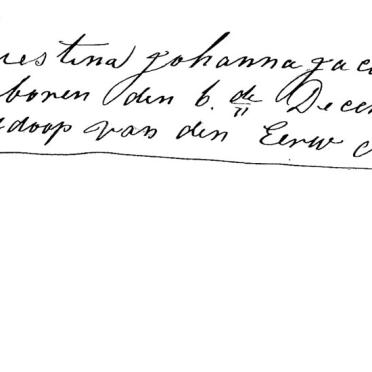 restina Johanna Jaco
boren den 6. de Decem
doop van den Eerw